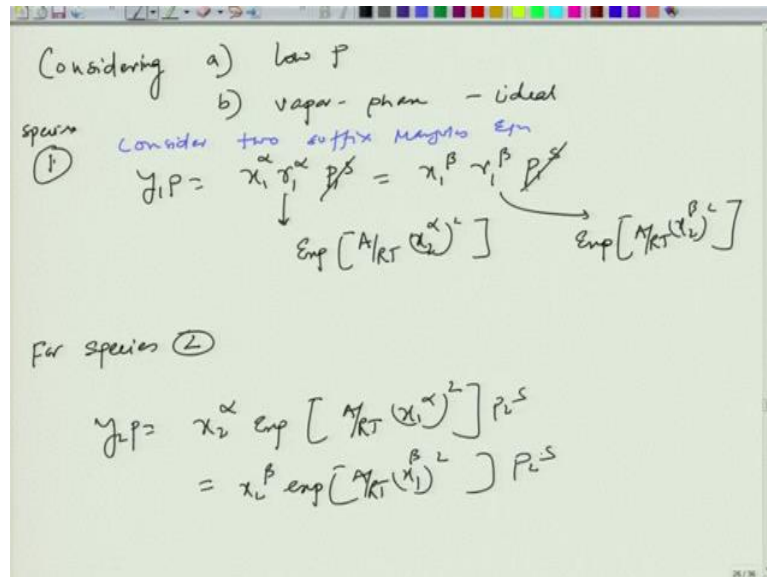 Considering a) Low P
b) vapor-phase - ideal
species
① Consider two suffix Margules Eqn
y₁P = x₁^α γ₁^α P₁^S = x₁^β γ₁^β P₁^S
Exp [A/RT (x₂^α)²] Exp [A/RT (x₂^β)²]
For species ②
y₂P = x₂^α Exp [A/RT (x₁^α)²] P₂^S
= x₂^β exp [A/RT (x₁^β)²] P₂^S
26/36